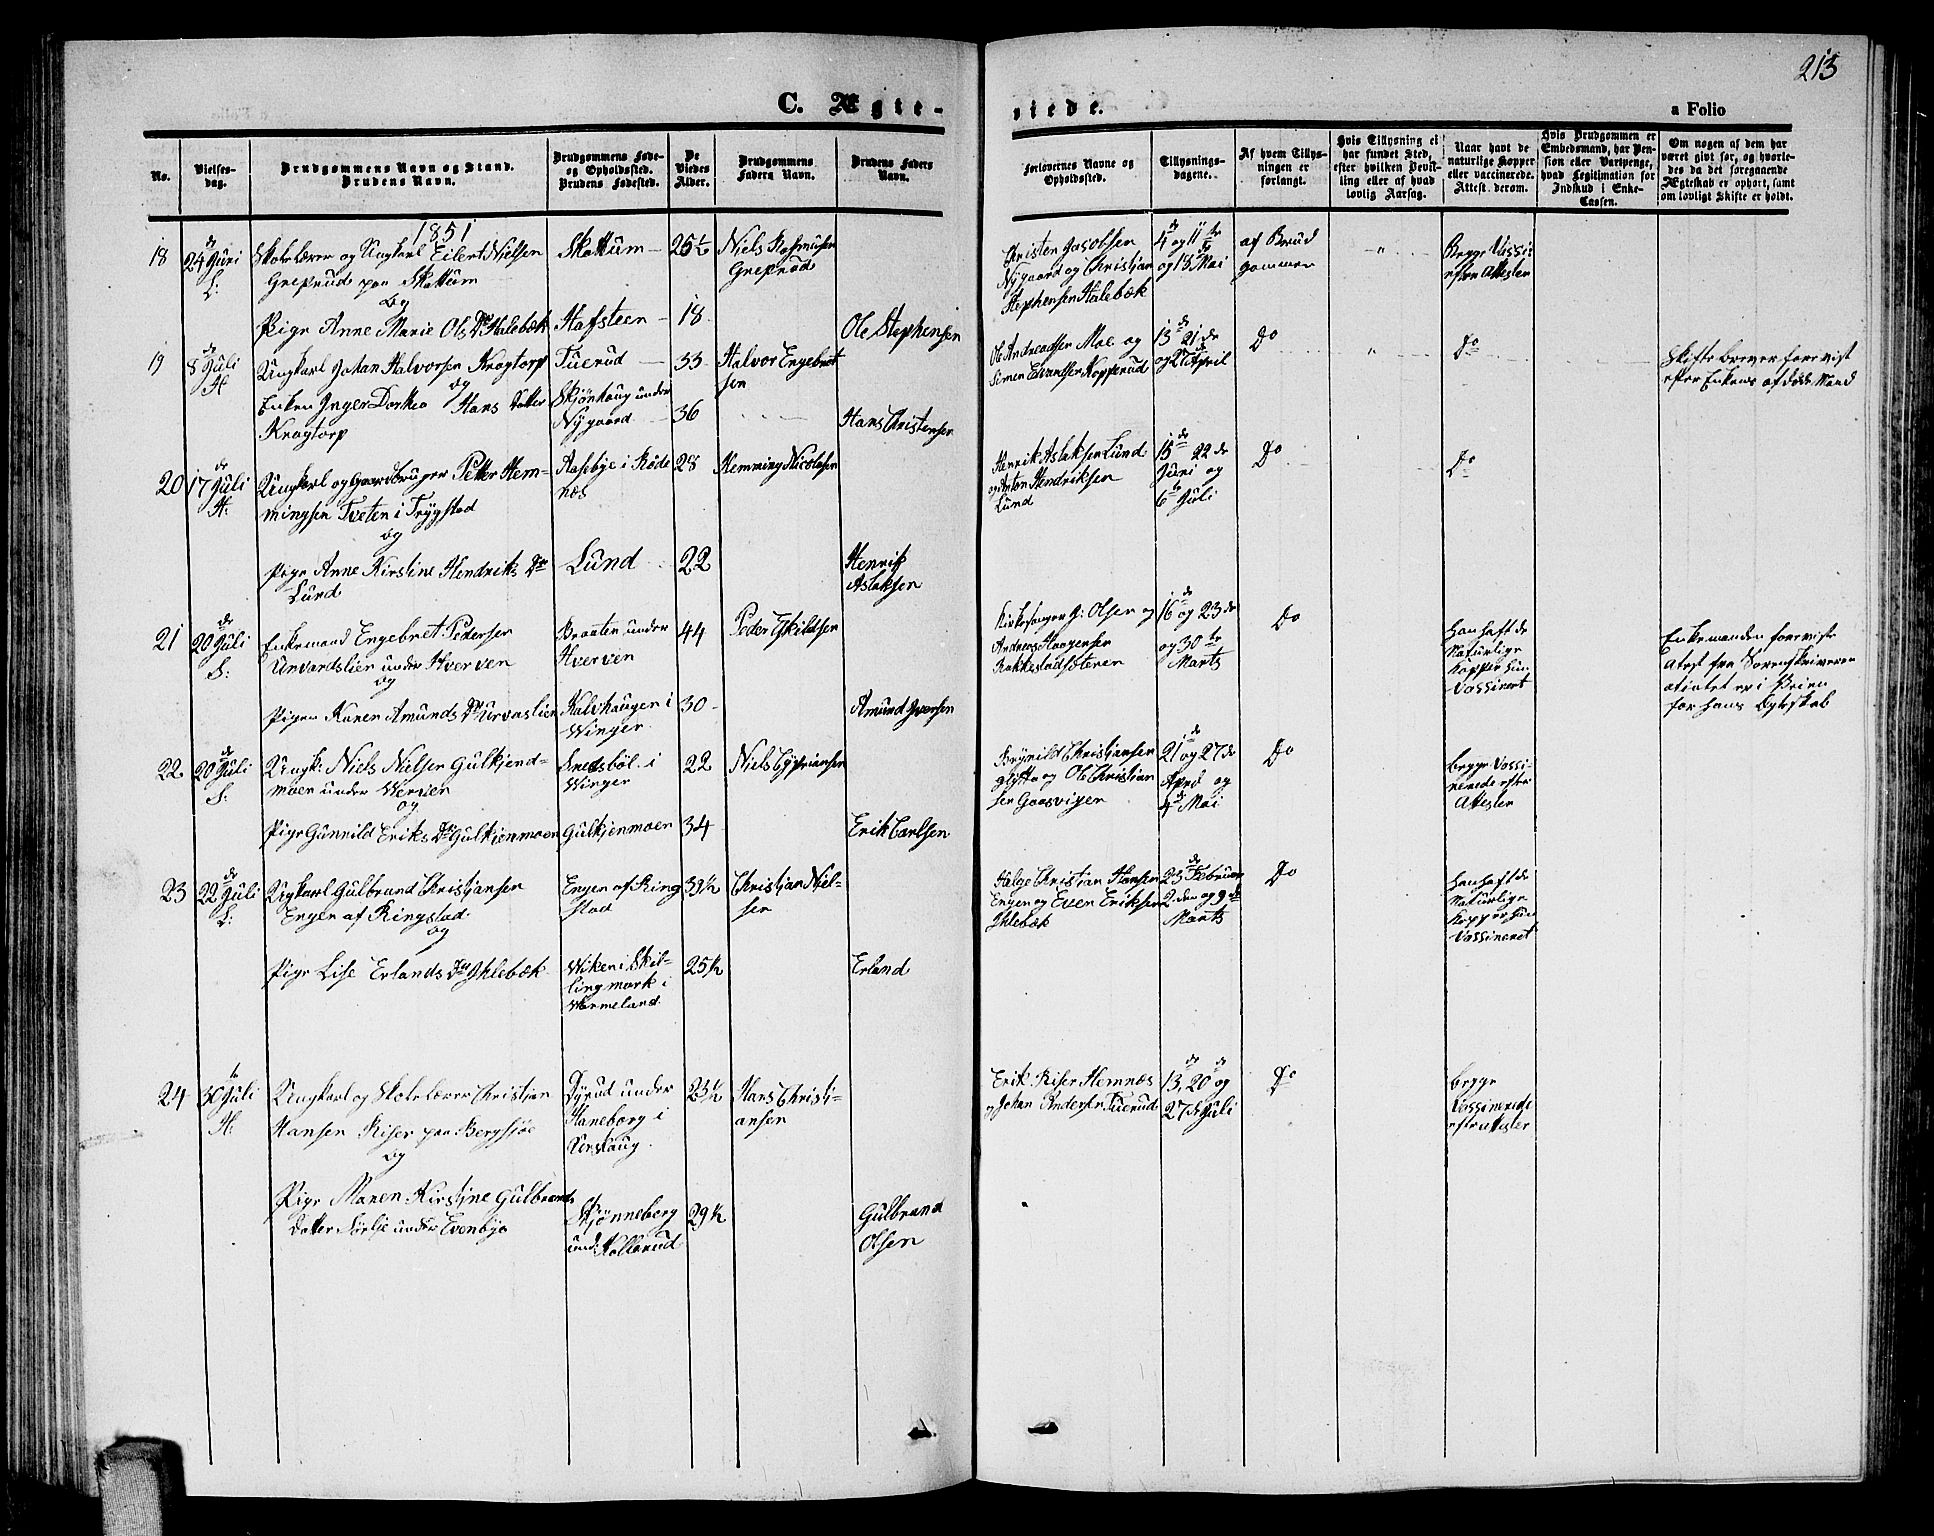 213
C. Ægte-
viede.
a Folio
No.
Vielses-
dag.
Brudgommens Navn og Stand.
Brudens Navn.
Brudgommens Føde-
og Opholdssted.
Brudens Fødested.
De
Viedes
Alder.
Brudgommens
Faders Navn.
Brudens Faders
Navn.
Forlovernes Navne og
Opholdssted.
Tillysnings-
dagene.
Af hvem Tillys-
ningen er
forlangt.
Hvis Tillysning ei
har fundet Sted,
efter hvilken Bevil-
ling eller af hvad
lovlig Aarsag.
Naar havt de
naturlige Kopper
eller vaccinerede.
Attest. derom.
Hvis Brudgommen er
Embedsmand, har Pen-
sion eller Vartpenge,
hvad Legitimation for
Indskud i Enke-
Cassen.
Om nogen af dem har
været givt før, og hvorle-
des da det foregaaende
Ægteskab er ophørt, samt
om lovligt Skifte er holdt.
1851
18
24de Juni
L:
Skolelærer og Ungkarl Eilert Nielsen
Greprud paa Skattum
og
Pige Anne Marie Ols Dtr Halebæk
Skattum
Hafsteen
25½
18
Niels Rasmusen
Greprud
Ole Stephensen
Christen Jacobsen
Nygaard og Christian
Stephensen Halebæk
4de og 11te
og 18de Mai
af Brud
gommen
"
Begge Vassi-
efter Attester
19
8de Juli
H
Ungkarl Johan Halvorsen Kragtorp
og
Enken Inger Dorthea Hans Datter
Kragtorp
Tuerud
Skjønhaug under
Nygaard
33
36
Halvor Engebret
sen
Hans Christensen
Ole Andreassen Moe og
Simen Edvardsen Kopperud
13de 21de
og 27de April
Do
"
Do
Skifte brever forevist
efter Enkens afdøde Mand
20
17de Juli
H:
Ungkarl og Gaardbruger Petter Hem-
mingsen Tveten i Trygstad
og
Pige Anne Kirstine Hendriks Dtr
Lund
Aasebye i Røde
næs
Lund
28
22
Hemming Nicolaisen
Henrik
Aslaksen
Henrik Aslaksen Lund
og Anton Hendriksen
Lund
15de 22de
Juni og
6te Juli
Do
Do
21
20de Juli
S:
Enkemand Engebret Pedersen
Urvardslien under Hverven
og
Pigen Karen Amunds Dtr Urvaslien
Braaten under
Hverven
Kalvhaugen i
Winger
44
30
Peder Eskildsen
Amund Iversen
Kirkesanger J: Olsen og
Andreas Haagensen
Rakkestadsæteren
16de og 23de
og 30te
Marts
Do
Han haft de
Naturlige
Kopper hun
Vassineret
Enkemanden foreviste
Atest fra Sorenskriveren
for hans Ægteskab
22
20de Juli
S:
Ungk: Niels Nielsen Gulkjend-
moen under Wervien
og
Pige Gunnild Eriks Dtr Gulkjenmoen
Snedsbøl i
Winger
Gulkjenmoen
22
34
Niels Cyprians​en
Erik Carlsen
Brynild Christiansen
og Ole Christian
sen Gaasvigen
21de og 27de
April og
4de Mai
Do
begge Vassi-
nerede efter
Attester
23
22de Juli
L:
Ungkarl Gulbrand Christjansen
Engen af Ringstad
og
Pige Lise Erlands Dtr Ihlebæk
Engen af Ring
stad
Wiken i Skil-
lingmark i
Wermeland
39½
25½
Christjan Niel-
sen
Erland
Helge Christian Hansen
Engen og Even Eriksen
Ihlebæk
23de Februar
2den og 9de
Marts
Do
Han haft de
Naturlige
Kopper hun
Vassineret
24
30te Juli
H:
Ungkarl og Skolelærer Christjan
Hansen Riser paa Bergsjøe
og
Pige Maren Kirstine Gulbrands
Datter Sørlie under Evenbye
Dyrud under
Haneborg i
Urskaug.
Skjønneberg
und: Kollerud
23½
29½
Hans Christj-
ansen
Gulbrand
Olsen
Erik Riser Hemnæs
og Johan Andersen Tuerud
13de, 20de og
27de Juli
Do
begge
Vassinerede
efter Attester